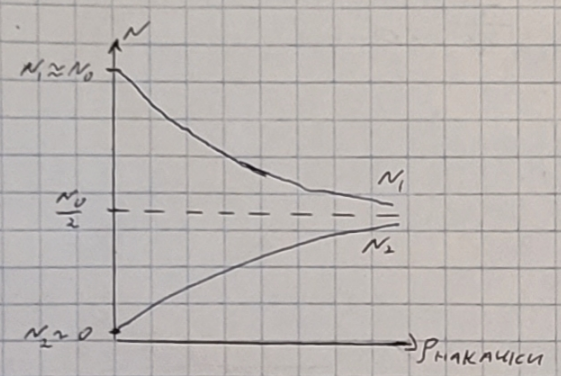 N
N₁≈N₀
N₁
N₀/2
N₂
N₂~0
ρнакачки